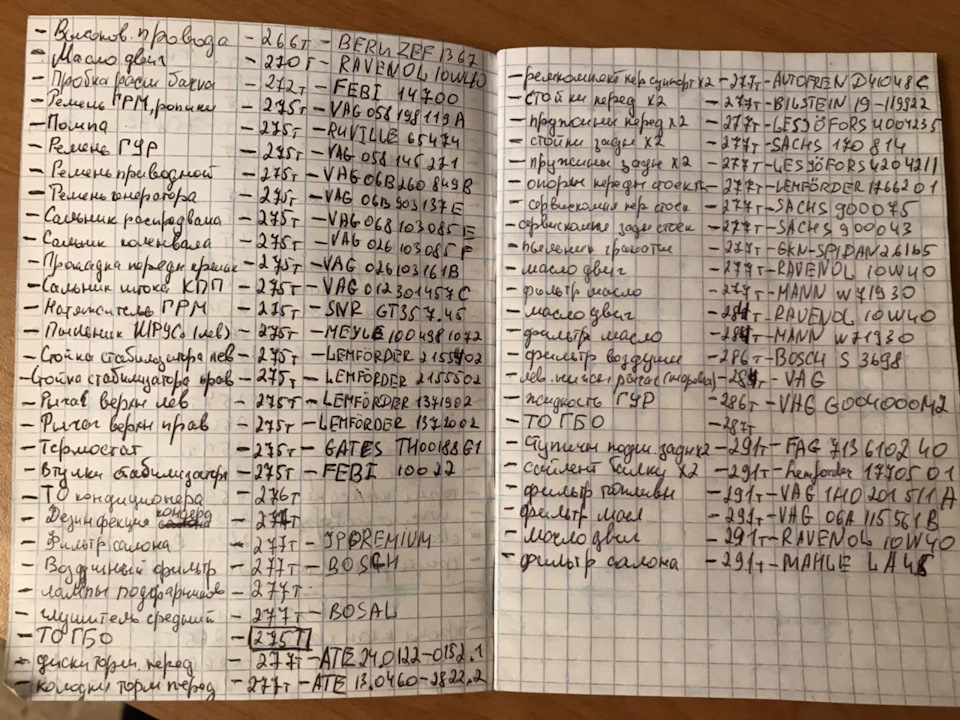 - Высоков. провода - 266т - BERU ZEF 1367
- Масло двиг - 270т - RAVENOL 10W40
- Пробка расш бачка - 272т - FEBI 14700
- Ремень ГРМ, ролики - 275т - VAG 058 198 119 A
- Помпа - 275т - RUVILLE 65474
- Ремень ГУР - 275т - VAG 058 145 271
- Ремень приводной - 275т - VAG 06B 260 849 B
- Ремень генератора - 275т - VAG 06B 903 137 E
- Сальник распредвала - 275т - VAG 068 103 085 E
- Сальник коленвала - 275т - VAG 026 103 085 F
- Прокладка передн крышк - 275т - VAG 026 103 161 B
- Сальник штока КПП - 275т - VAG 012 301 457 C
- Натяжитель ГРМ - 275т - SNR GT357.45
- Пыльник ШРУСа (лев) - 275т - MEYLE 100 498 1072
- Стойка стабилизатора лев - 275т - LEMFÖRDER
- Стойка стабилизатора прав - 275т - LEMFÖRDER 2155502
- Рычаг верхн лев - 275т - LEMFÖRDER 1371902
- Рычаг верхн прав - 275т - LEMFÖRDER 1372002
- Термостат - 275т - GATES TH00188G1
- Втулки стабилизатора - 275т - FEBI 10022
- ТО кондиционера - 276т
- Дезинфекция конд - 277т
- Фильтр салона - 277т - JPPREMIUM
- Воздушный фильтр - 277т - BOSCH
- лампы подфарников - 277т
- глушитель средний - 277т - BOSAL
- ТО ГБО - 275т
- диски торм. перед - 277т - ATE 24.0122-0152.1
- колодки торм перед - 277т - ATE 13.0460-2822.2
- ремкомплект пер суппорт х2 - 277т - AUTOFREN D41048C
- стойки перед х2 - 277т - BILSTEIN 19-119922
- пружины перед х2 - 277т - LESJÖFORS 4004235
- стойки задн х2 - 277т - SACHS 170 814
- пружины задн х2 - 277т - LESJÖFORS 4204211
- опоры передн стоек - 277т - LEMFÖRDER 1766201
- сервискомпл пер стоек - 277т - SACHS 900075
- сервискомпл задн стоек - 277т - SACHS 900043
- пыльник - 277т - GKN-SPIDAN 26165
- масло двиг - 277т - RAVENOL 10W40
- фильтр масло - 277т - MANN W71930
- масло двиг - 284т - RAVENOL 10W40
- фильтр масло - 284т - MANN W71930
- фильтр воздушн - 286т - BOSCH S 3698
- лев. нижн рычаг - 284т - VAG
- жидкость ГУР - 286т - VAG G004000M2
- ТО ГБО - 287т
- Ступичн подш. задн х2 - 291т - FAG 713 6102 40
- сайлент балки х2 - 291т - Lemforder 17705 01
- фильтр топливн - 291т - VAG 1H0 201 511 A
- фильтр масл - 291т - VAG 06A 115 561 B
- масло двиг - 291т - RAVENOL 10W40
- фильтр салона - 291т - MAHLE LA45